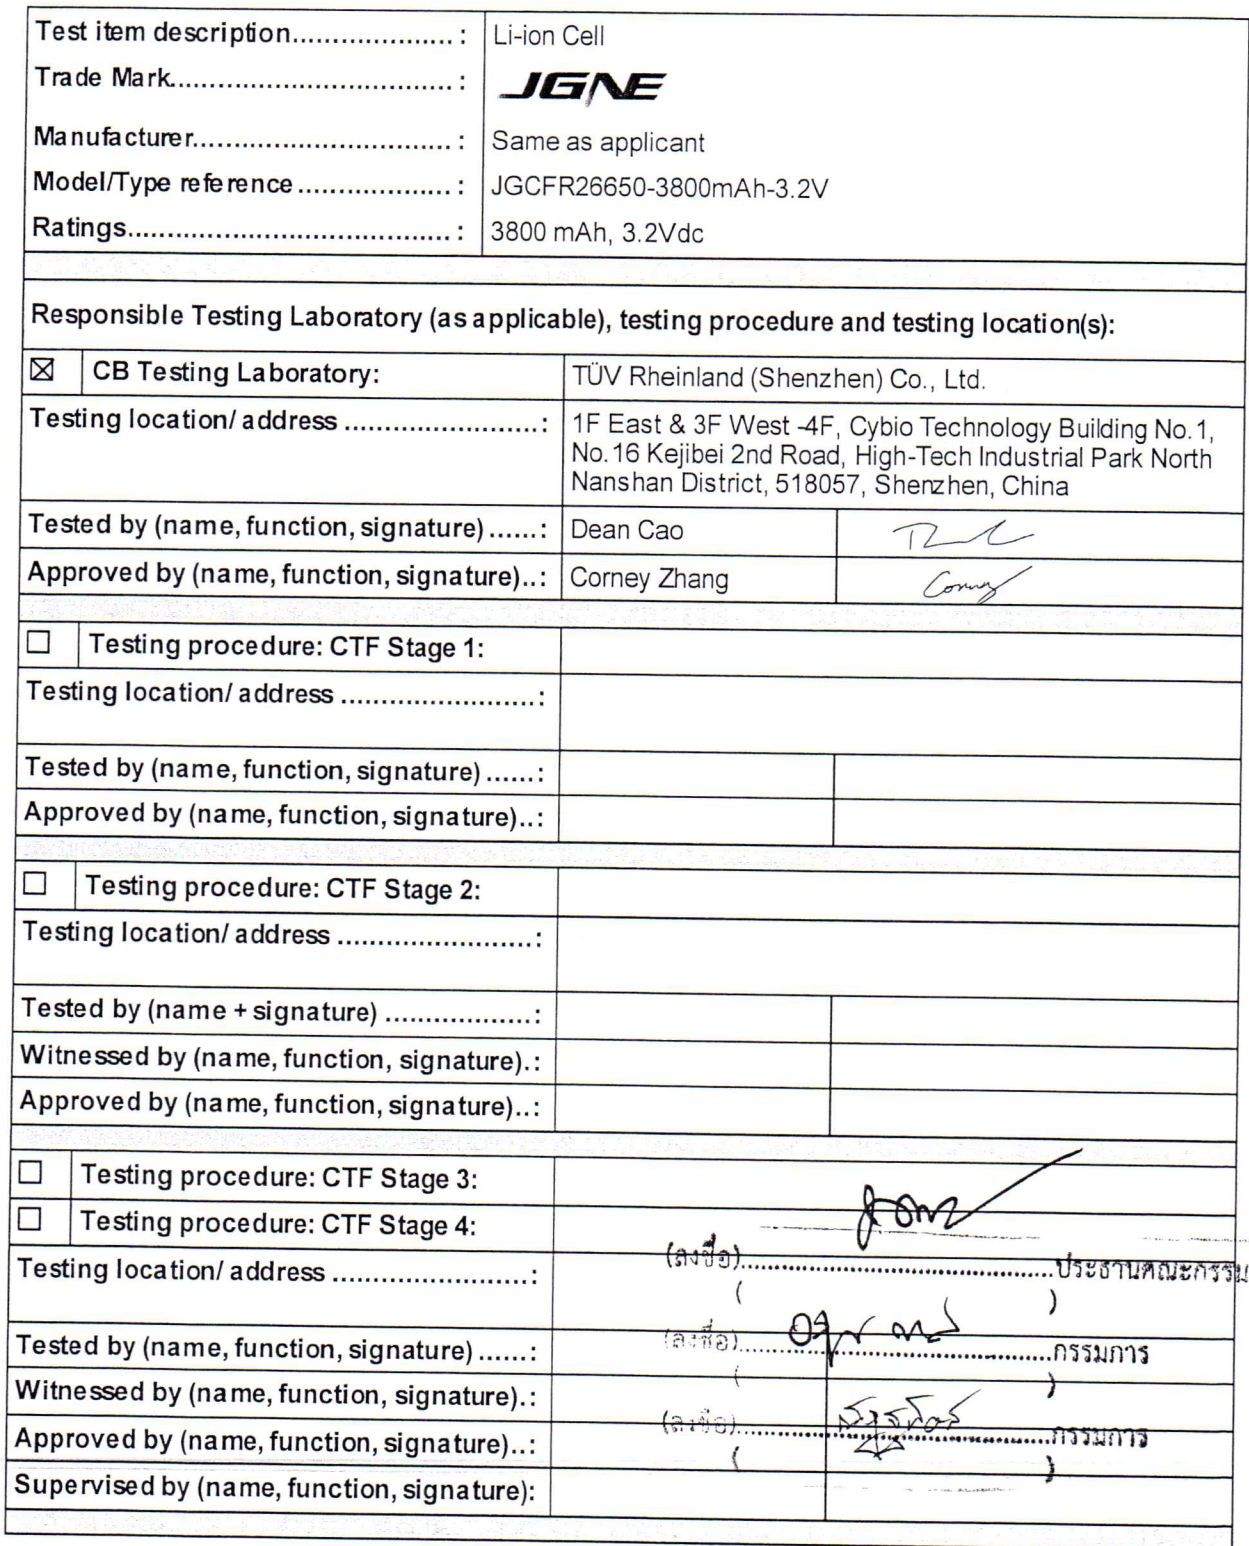 Test item description....................: Li-ion Cell
Trade Mark..............................: JGNE
Manufacturer............................: Same as applicant
Model/Type reference...................: JGCFR26650-3800mAh-3.2V
Ratings.....................................: 3800 mAh, 3.2Vdc
Responsible Testing Laboratory (as applicable), testing procedure and testing location(s):
☒ CB Testing Laboratory: TÜV Rheinland (Shenzhen) Co., Ltd.
Testing location/ address ........................: 1F East & 3F West -4F, Cybio Technology Building No.1,
No.16 Kejibei 2nd Road, High-Tech Industrial Park North
Nanshan District, 518057, Shenzhen, China
Tested by (name, function, signature) ......: Dean Cao
Approved by (name, function, signature)..: Corney Zhang Corney
☐ Testing procedure: CTF Stage 1:
Testing location/ address ........................:
Tested by (name, function, signature) ......:
Approved by (name, function, signature)..:
☐ Testing procedure: CTF Stage 2:
Testing location/ address ........................:
Tested by (name + signature) ..................:
Witnessed by (name, function, signature).:
Approved by (name, function, signature)..:
☐ Testing procedure: CTF Stage 3:
☐ Testing procedure: CTF Stage 4:
(ลงชื่อ)........................................ประธานคณะกรรม
Testing location/ address ........................:
( )
(ลงชื่อ)........................................กรรมการ
Tested by (name, function, signature) ......:
( )
Witnessed by (name, function, signature).:
(ลงชื่อ)........................................กรรมการ
Approved by (name, function, signature)..:
( )
Supervised by (name, function, signature):